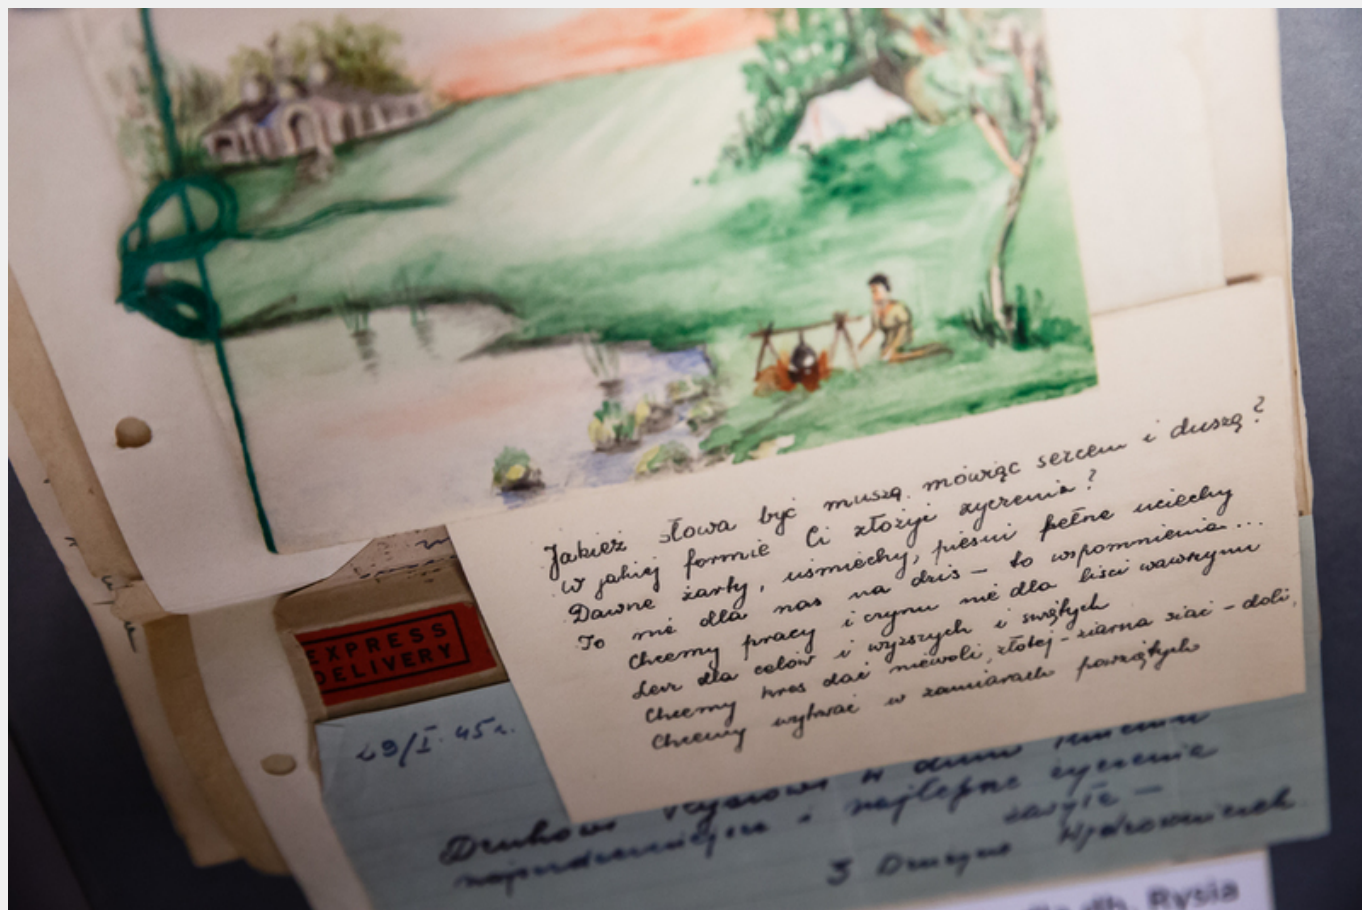 Jakież słowa być muszą, mówiąc sercem i duszą?
W jakiej formie Ci złożyć życzenia?
Dawne żarty, uśmiechy, pieśni pełne uciechy
To nie dla nas na dziś – to wspomnienia...
Chcemy pracy i czynu nie dla liści wawrzynu
Lecz dla celów i wyższych i świętych
Chcemy kres dać niewoli, złotej – ziarna siać – doli,
Chcemy wytrwać w zamiarach powziętych
EXPRESS
DELIVERY
29/I. 45 r.
Druhowi Rysiowi w dniu Imienin
najserdeczniejsze i najlepsze życzenia
zasyła —
3 Drużyna Wędrowniczek
dh. Rysia